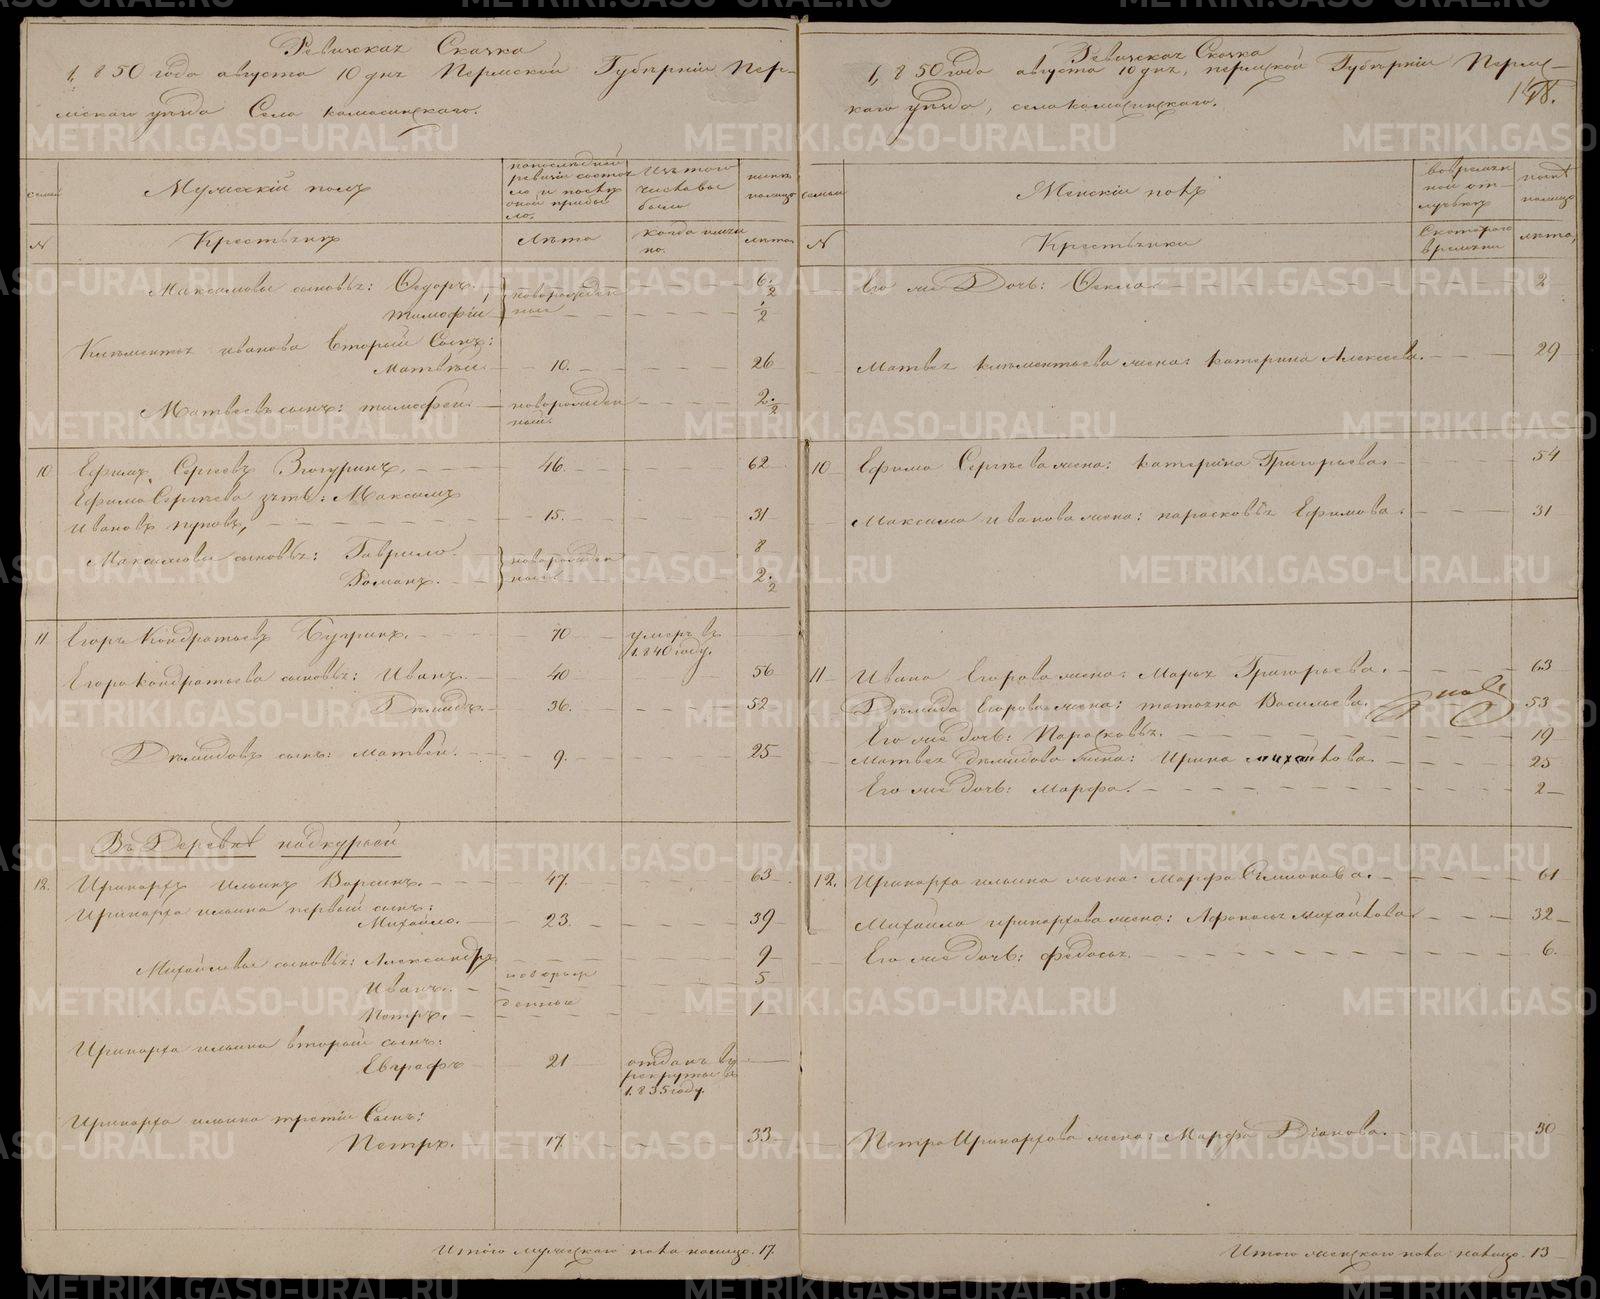 Ревижская Скаска
1,850 года августа 10 дня Пермской Губѣрніи Пер-
мскаго уѣзда Села камасинскаго.
семьи
Мужескій полъ
попослѣдней ревизіи состояло и послѣ оной прибыло.
Изъ того числа выбыло
нынѣ налицо
№
Крестьянъ
Лѣта
когда имянно.
лѣта
Максимовы сыновья: Федоръ.
новорожденные
6 1/2
Тимофѣй
1/2
Климентья иванова вторый Сынъ:
Матвѣй.
10.
26
Матвеевъ сынъ: тимофей.
новорожденный.
2 1/2
10
Ефимъ Сергеевъ Вшугринъ.
46.
62
Ефима Сергѣева зять: Максимъ
Ивановъ пуповъ,
15.
31
Максимовы сыновья: Гаврило.
новорожденные
8
Романъ.
2 1/2
11
Егоръ Кондратьевъ Бугринъ.
70
умеръ въ
1.840 году.
Егора Кондратьева сыновья: Иванъ.
40
56
Дѣмидъ.
36.
52
Дѣмидовъ сынъ: матвей.
9.
25
Въ Деревнѣ надкурьей
12.
Иринархъ ильинъ Варсинъ.
47.
63
Иринарха ильина первый сынъ:
Михайло.
23
39
Михайловы сыновья: Александръ
новорожденные
9
Иванъ.
5
Петръ.
1
Иринарха ильина вторый сынъ:
Евграфъ
21
отданъ въ
рекруты въ
1.835 году.
Иринарха ильина третій Сынъ:
Петръ.
17.
33
Итого мужескаго пола налицо. 17.
Ревижская Скаска
1,850 года августа 10 дня, пермской Губѣрніи Пермс-
каго уѣзда, села камасинскаго.
148.
семьи
Женскій полъ
вовременной отлучкѣ
нынѣ налицо
№
Крестьянки
Скотораго времѣни
лѣта,
Его же Дочь: Фекла.
2
Матвея климентьева жена: катерина Алексеева.
29
10
Ефима Сергѣева жена: катерина Григорьева.
54
Максима иванова жена: парасковья Ефимова.
31
11
Ивана Егорова жена: Марья Григорьева.
63
Дѣмида Егорова жена: татьяна Васильева.
53
Его же дочь: Парасковья.
19
Матвея дѣмидова жена: Ирина михайлова.
25
Его же дочь: Марфа.
2
12.
Иринарха ильина жена: Марфа Симионова.
61
Михаила иринархова жена: Афонасья михайлова
32
Его же дочь: федосья.
6.
Петра Иринархова жена: Марфа Дѣянова.
30
Итого женскаго пола налицо. 13